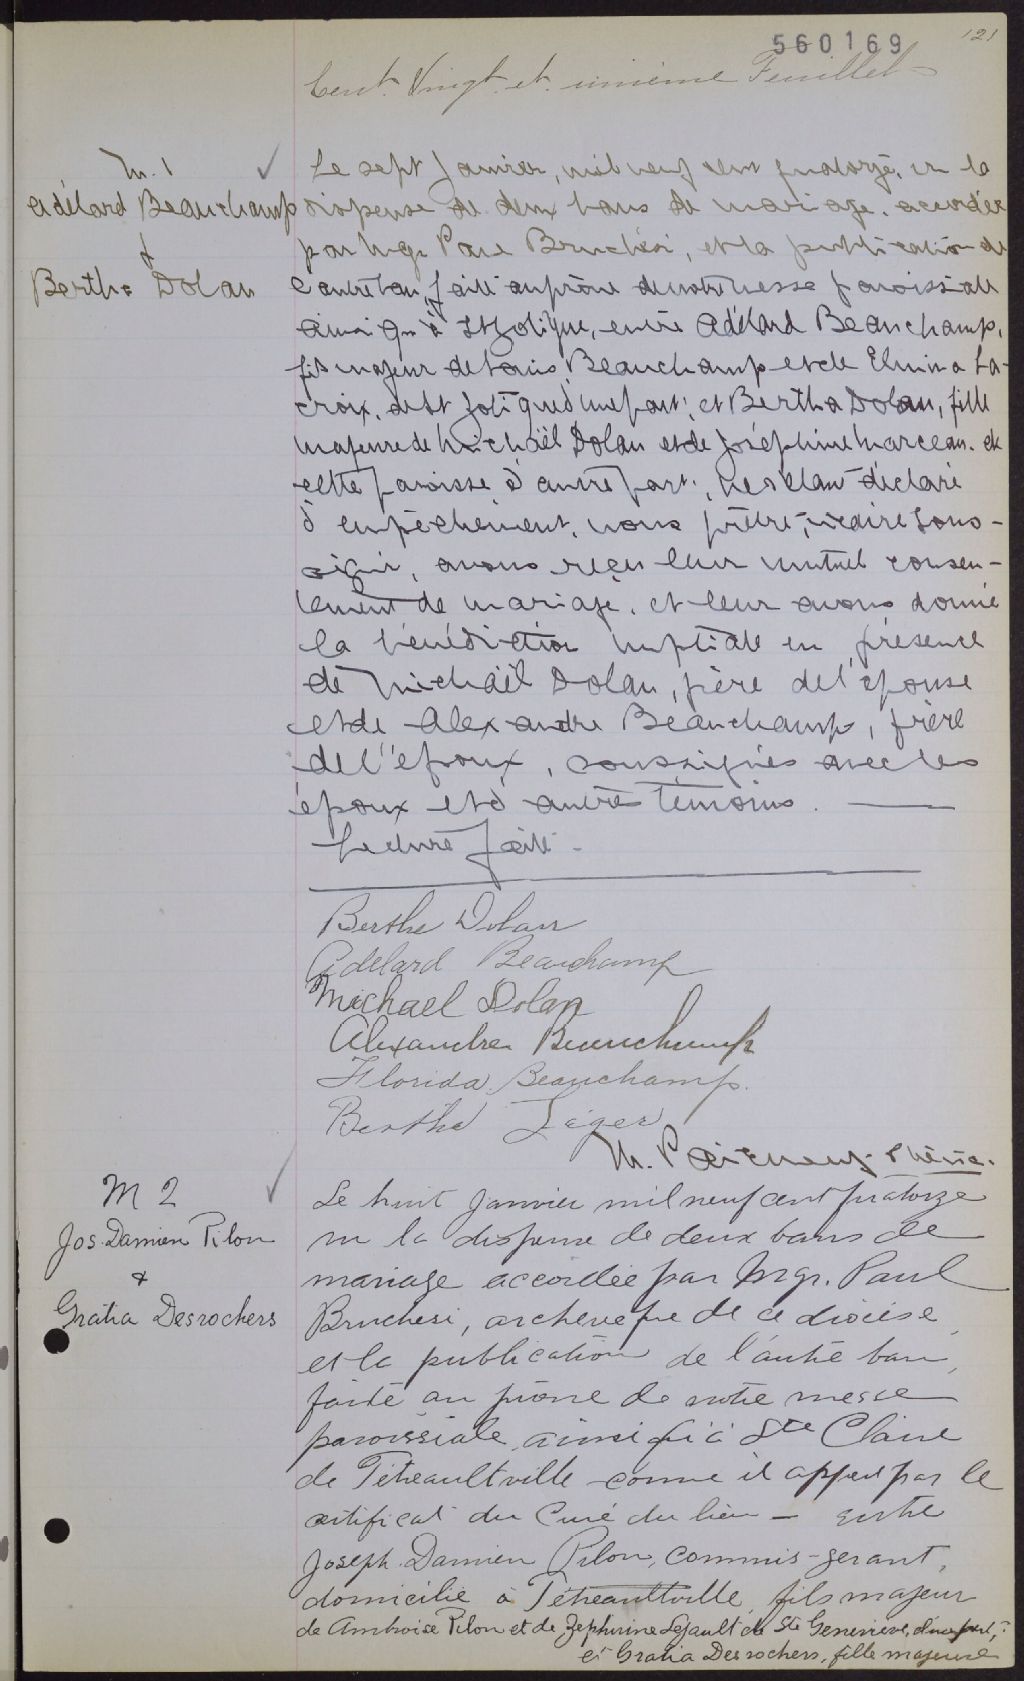 560169
121
Cent. Vingt. et. unième Feuillet
M. 1
Adélard Beauchamp
&
Bertha Dolan
Le sept Janvier, mil neuf cent quatorze, vu la
dispense de deux bans de mariage. accordée
par Mgr Paul Bruchési, et la publication de
l'autre ban, faite au prône de notre messe paroissiale
ainsi qu'à St Zotique, entre Adélard Beauchamp,
fils majeur de Louis Beauchamp et de Elmina La-
croix, de St Zotique d'une part, et Bertha Dolan, fille
majeure de Michaël Dolan et de Joséphine Marceau. de
cette paroisse d'autre part, ne s'étant déclaré
d'empêchement, nous prêtre, vicaire sous-
signé, avons reçu leur mutuel consen-
tement de mariage. et leur avons donné
la bénédiction nuptiale en présence
de Michaël Dolan, père de l'épouse
et de Alexandre Beauchamp, frère
de l'époux, soussignés avec les
époux et d'autres témoins.
Lecture faite.
Berthe Dolan
Adelard Beauchamp
Michael Dolan
Alexandre Beauchamp
Florida Beauchamp.
Bertha Léger
M 2
Jos. Damien Pilon
&
Gratia Desrochers
Le huit Janvier mil neuf cent quatorze
vu la dispense de deux bans de
mariage accordée par Mgr. Paul
Bruchesi, archevêque de ce diocèse
et la publication de l'autre ban,
faite au prône de notre messe
paroissiale, ainsi qu'à Ste Claire
de Tétreaultville comme il appert par le
certificat du Curé du lieu — entre
Joseph Damien Pilon, commis-gerant,
domicilié à Tétreaultville, fils majeur
de Ambroise Pilon et de Zephirine Legault de Ste Genevieve, d'une part,
et Gratia Desrochers, fille majeure